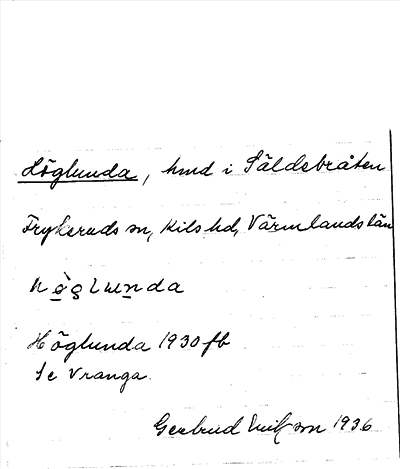 Höglunda, hmd i Säldebråten
Frykeruds sn, Kils hd, Värmlands län
hö̀glunda
Höglunda 1930 fb
Se Vranga.
Gertrud Eriksson 1936